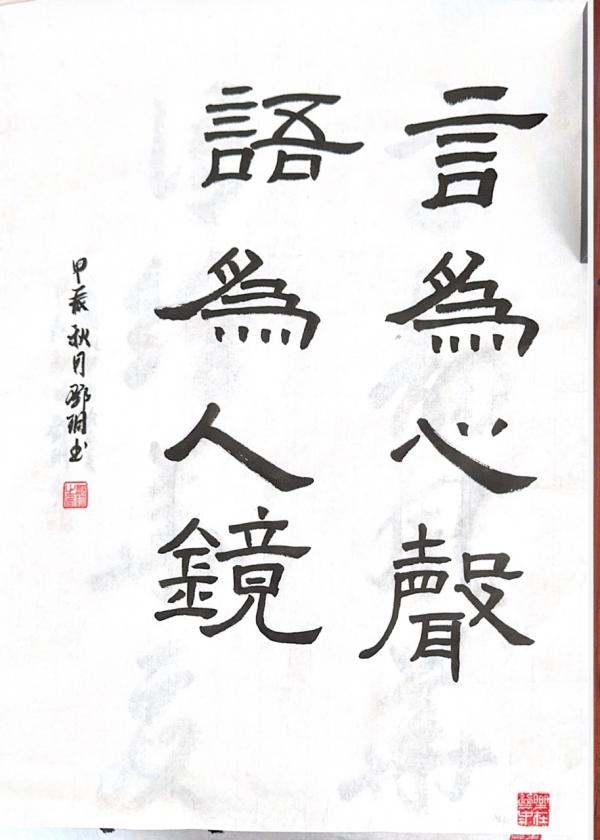 言為心聲
語為人鏡
甲辰秋月鄧朋书